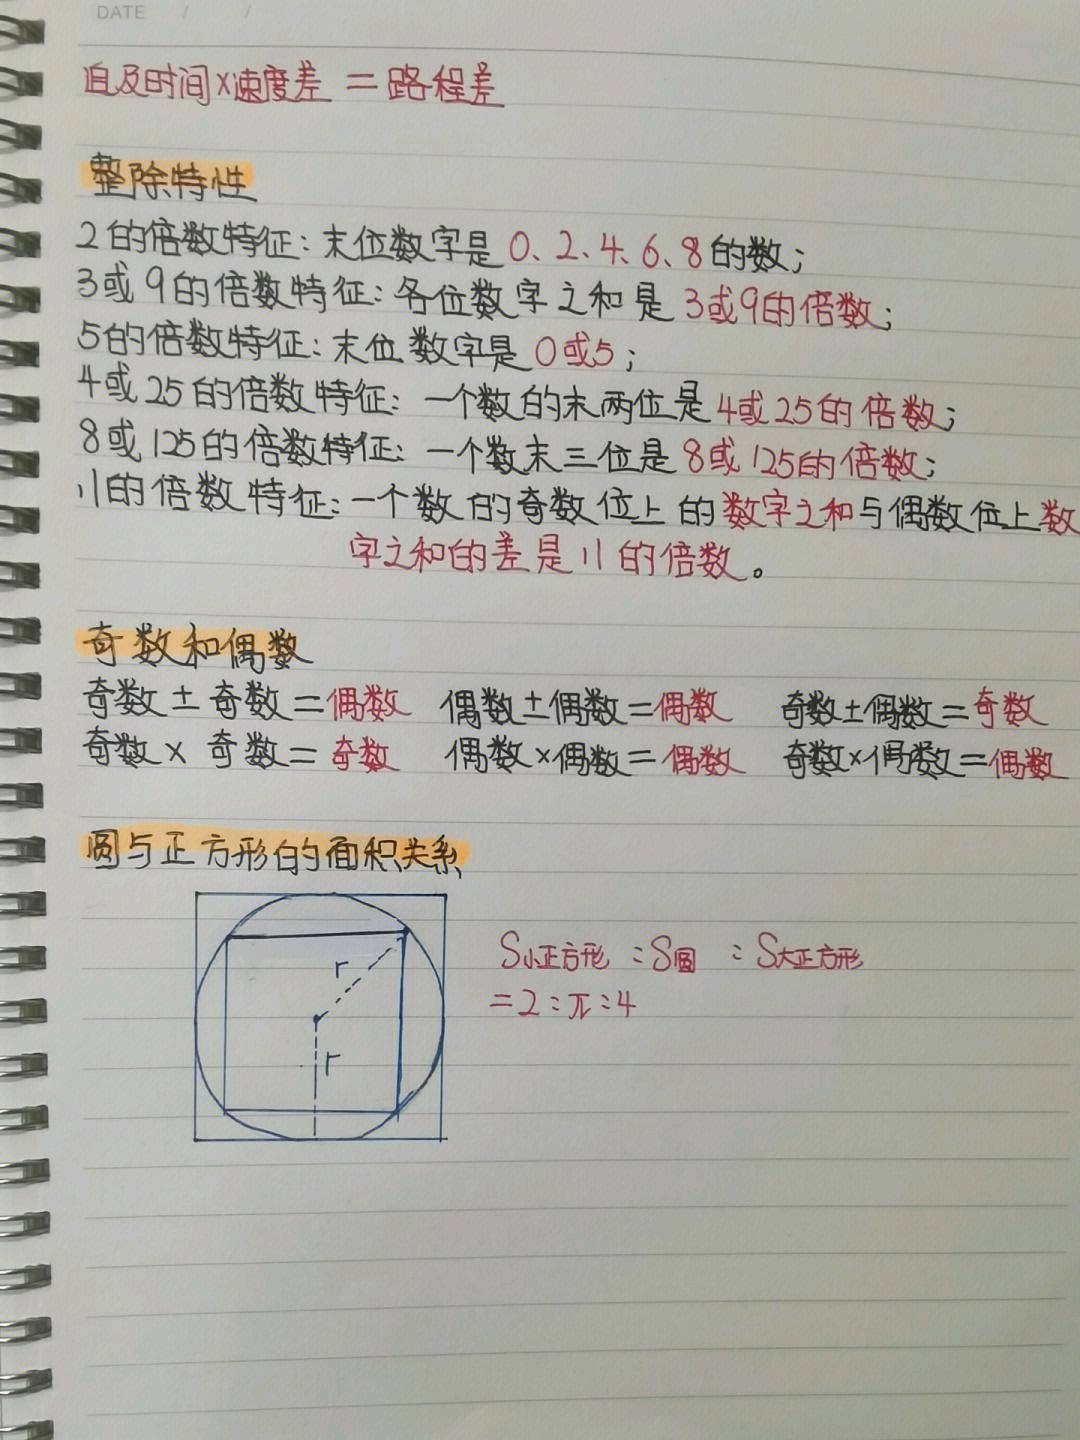 DATE / /
追及时间×速度差=路程差
整除特性
2的倍数特征:末位数字是0、2、4、6、8的数;
3或9的倍数特征:各位数字之和是3或9的倍数;
5的倍数特征:末位数字是0或5;
4或25的倍数特征:一个数的末两位是4或25的倍数;
8或125的倍数特征:一个数末三位是8或125的倍数;
11的倍数特征:一个数的奇数位上的数字之和与偶数位上数
字之和的差是11的倍数。
奇数和偶数
奇数±奇数=偶数 偶数±偶数=偶数 奇数±偶数=奇数
奇数×奇数=奇数 偶数×偶数=偶数 奇数×偶数=偶数
圆与正方形的面积关系
S小正方形:S圆:S大正方形
=2:π:4
r
r